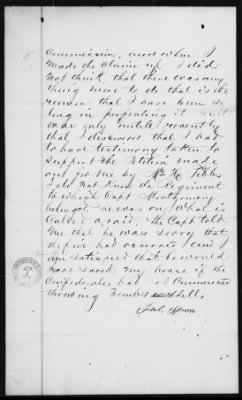 Commission, and when I
made the Claim up I did
Not think that there was any
thing more to do that is the
reason that I have been so
long in prosecuting it and
was only until recently
that I discovered that I had
to have testimony taken to
support the Petition made
out for me by Wm H. Tibbs
I do Not Know the Regiment
to which Capt Montgomery
belonged, he was on What is
Called a raid, the Capt told
Me that he was sorry that
the fire had occurred & and I
am satisfied that he would
have saved my house if the
Confederates had not Commenced
throwing bombs shell.